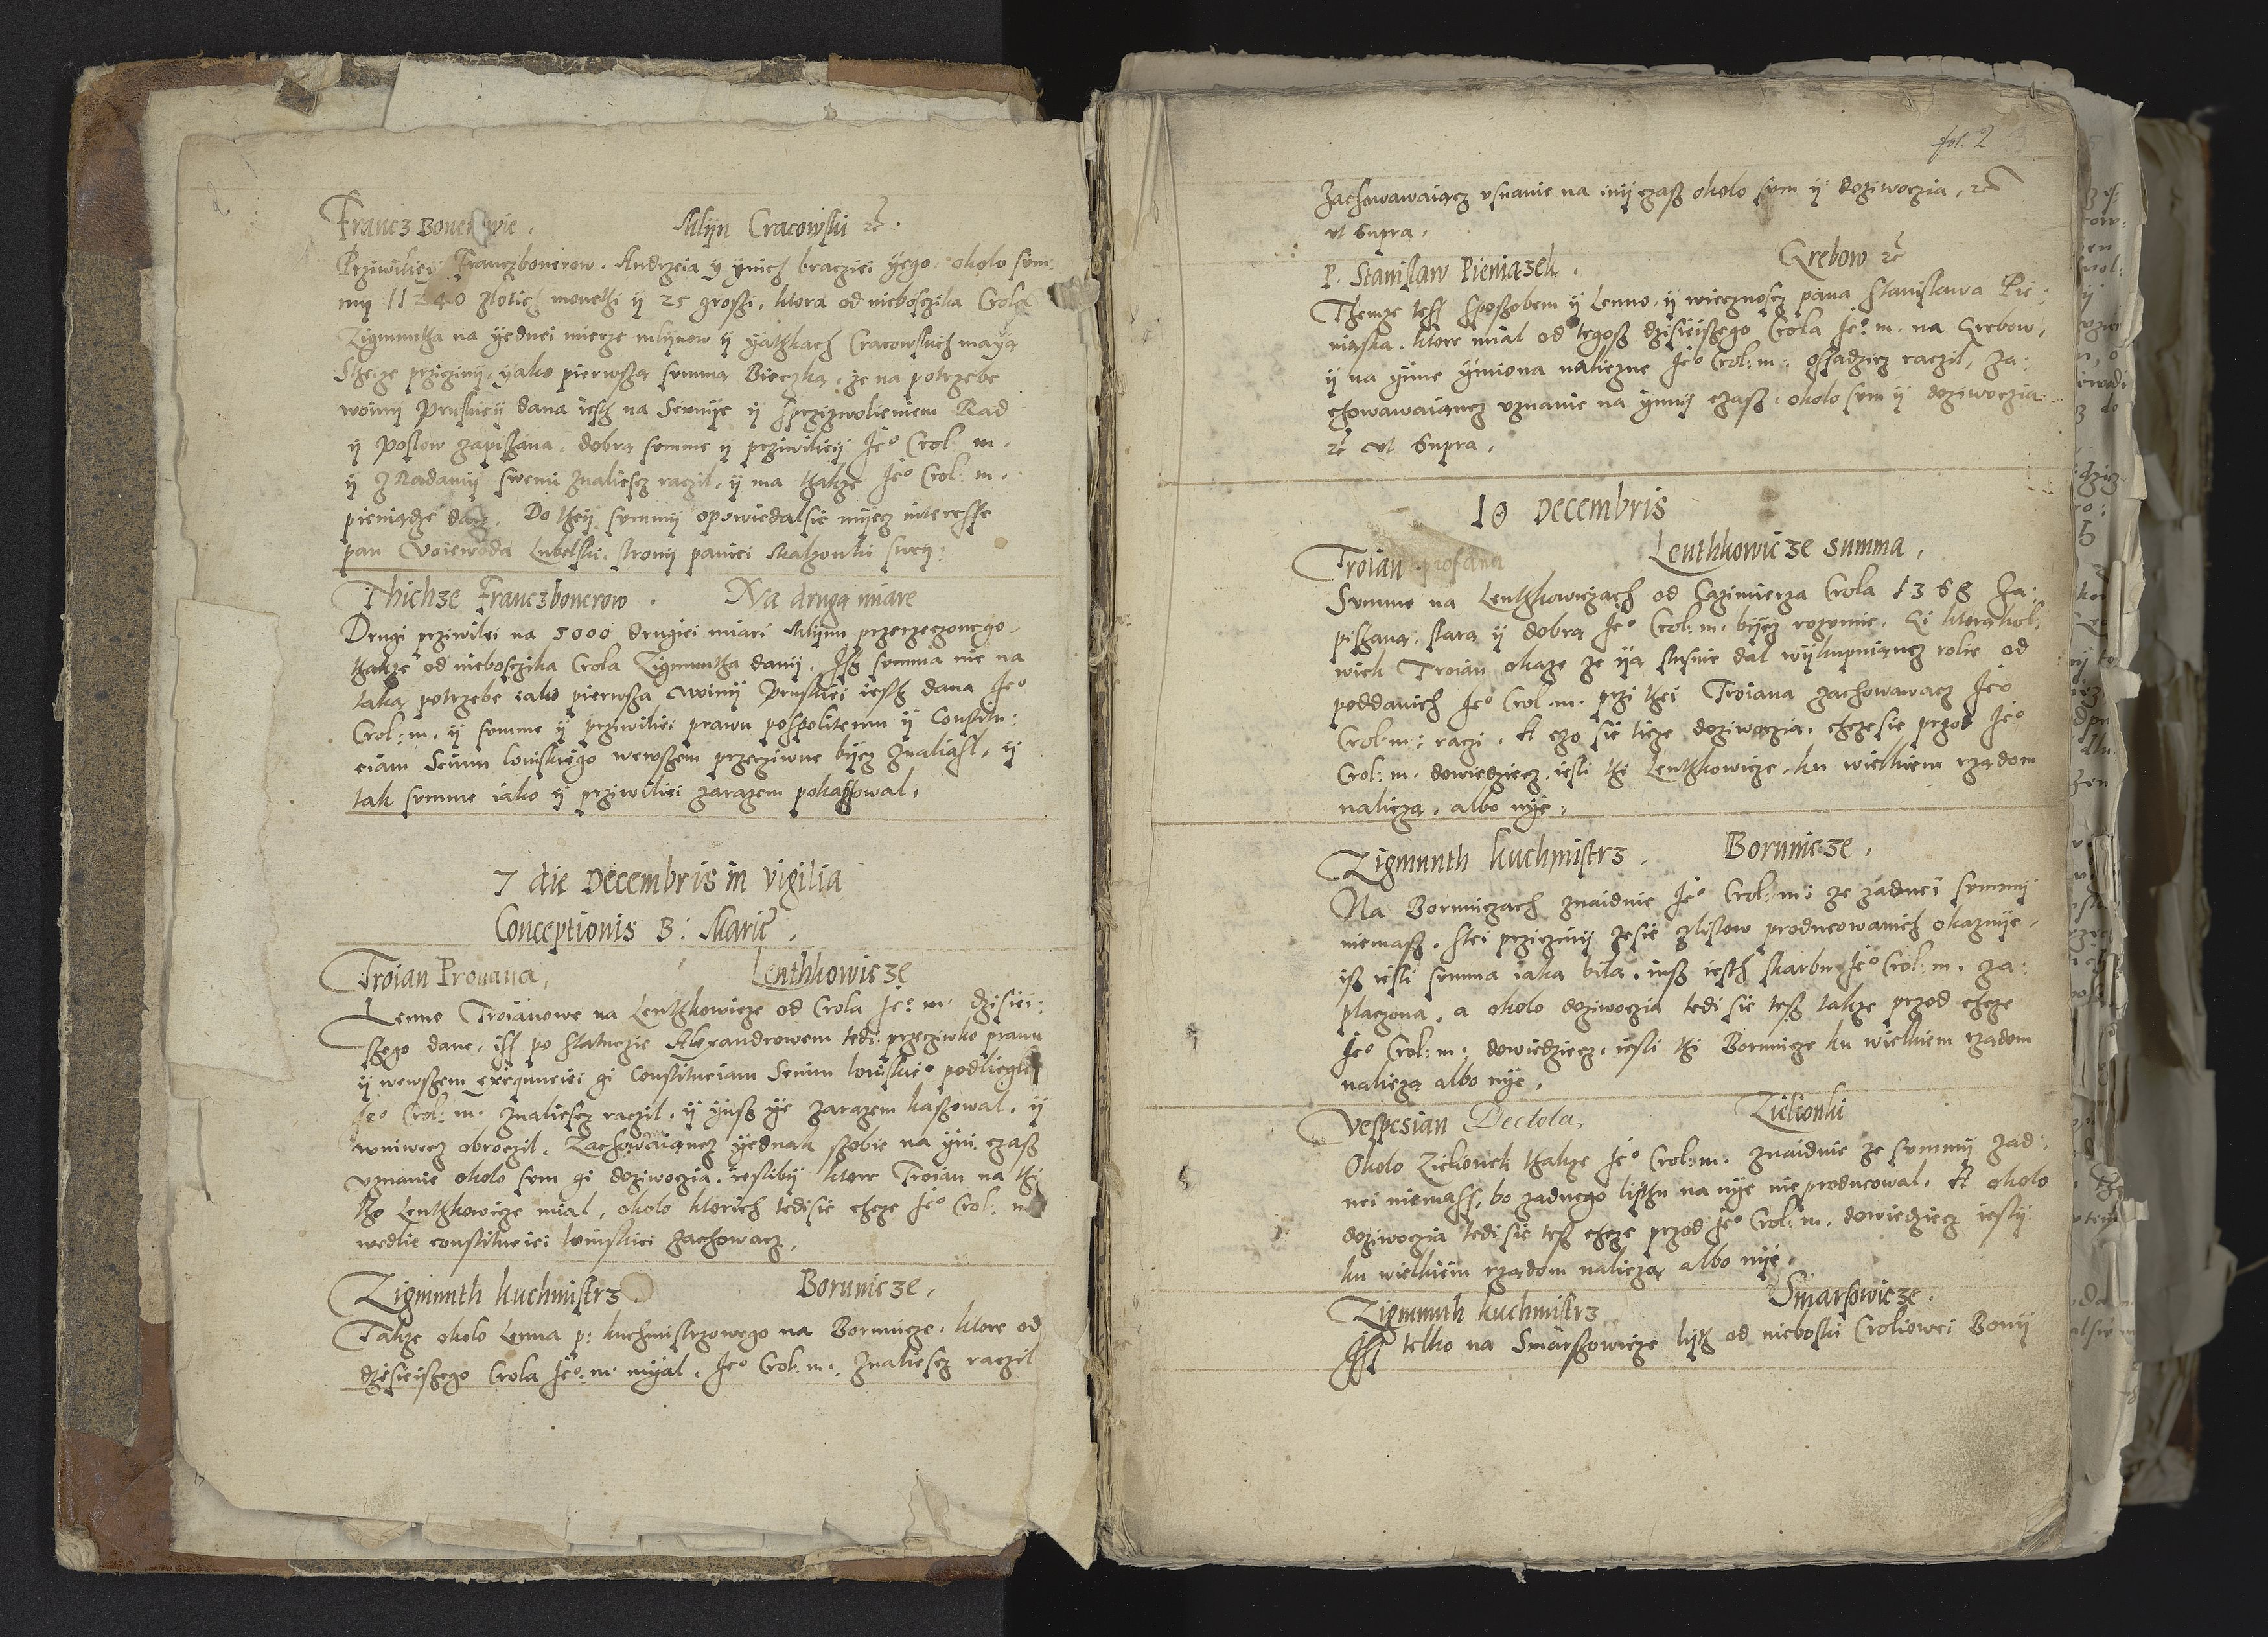 Francz Bonerowie. Mlijn Cracowski etc.
Prziwiliey Franczbonerow. Andrzeia y ynich braciei yego. około sum:
my 11240 złotich monethi ij 25 groszi. ktora od nieboszczika Crola
Zigmuntha na yednei mierze mlijnow ij yathkach Cracowskich maya
Stheize prziczinij, yako pierwsza summa Bieczka, ze na potrzebe
woinij Pruskieij dana iesth na Seimije ij sprzizwolieniem Rad
ij Posłow zapisana. dobra summe y prziwiliey Je° Crol: m.
ij z Radamij swemi znaliescz raczil, ij ma thakze Je° Crol: m.
pieniądze dacz. Do theij summij opowiedalsie miecz interesse
pan Woiewoda Lubelski. stronij paniei Małzonki swei:
Thichze Franczbonerow. Na drugą miare
Drugi prziwilei na 5000 drugiei miari Mlijnu przerzeczonego.
thakze od nieboszczika Crola Zigmuntha danij. Jsz summa nie na
taką potrzebe iako pierwsza woinij Pruskiei iesth dana Je°
Crol: m. ij summe ij prziwiliei prawu pospolitemu ij Constitu:
ciam Seimu lowskiego wewszem przeciwne bijcz znaliasl, ij
tak summe iako ij prziwiliei zarazem pokassowal.
7 die Decembris in vigilia
Conceptionis B: Marie.
Troian Prouana, Lenthkowicze
Lenno Troianowe na Lenthkowicze od Crola Je°: m. dzisiei:
szego dane. iss po statucie Alexandrowem tedi przeciwko prawu
ij wewszem exequuciei gi Constituciam Seimu lowskie° podliegle
Je° Crol: m. znaliescz raczil, ij yusz ye zarazem kassowal. ij
wniwecz obroczil. Zachowaiącz yednak sobie na yni czasz
uznanie około sum gi doziwocia. iesliby ktore Troian na thi
tho Lenthkowicze miał, około ktorich tedi sie chcze Je° Crol: m
wedlie constituciei lowskiei zachowacz.
Zigmunth kuchmistrz. Borunicze.
Takze około Lenna p: kuchmistrzowego na Borunicze. ktore od
dzisieiszego Crola Je°: m. mijal. Je° Crol: m: Znaliescz raczil
fol. 2
Zachowawaiącz usnanie na inij czasz około sum ij doziwoczia, etc
ut Supra.
P. Stanislaw Pieniązek. Grebow etc
Themze tesz sposzobem ij Lenno. ij wiecznoscz pana Stanisława Pie:
niąska. ktore miał od tegosz dzisieiszego Crola Je°: m. na Grebow,
ij na yine ymiona naliezne Je° Crol: m: ossądzicz raczil, za:
chowawaiącz uznanie na ynnij czasz. około sum ij doziwoczia.
etc ut Supra.
10 Decembris
Troian profana Lenthkowicze summa.
Summe na Lenthkowiczach od Cazimierza Crola 1368 za:
pisaną: starą ij dobrą Je° Crol: m. bijcz rozumie. Gi ktorąkol:
wiek Troian okaze ze ija slusnie dal wijkupuiącz rolie od
poddanich Je° Crol. m. przi thei Troiana zachowawacz Je°
Crol: m: raczi. A czo sie ticze doziwoczia. chcze sie przod Je°
Crol: m. dowiedziecz. iesli thi Lenthkowicze. ku wielkiem rządom
naliezą. albo nije.
Zigmunth kuchmistrz. Borunicze.
Na Boruniczach znaiduie Je° Crol: m: ze zadnei summij
niemasz. stei prziczinij ze sie zlistow producowanich okazuije.
isz iesli summa iaka bila. iusz iesth skarbu Je° Crol: m. za:
placzona. a około doziwoczia tedi sie tesz takze przod chcze
Je° Crol: m: dowiedziecz. iesli thi Borunicze ku wielkiem rządom
naliezą albo nije.
Vespesian Dectola, Zielionki
Około Zielionek thakze Je° Crol: m. znaiduie ze summij zad:
nei niemass, bo zadnego listhu na nije nie producowal. A około
doziwoczia tedi sie tesz chcze przod Je° Crol: m. dowiedziecz iesly
ku wielkiem rządom naliezą albo nije.
Zigmunth kuchmistrz Smarsowicze.
Iss telko na Smarsowicze lijst od nieboski Croliowei Bony